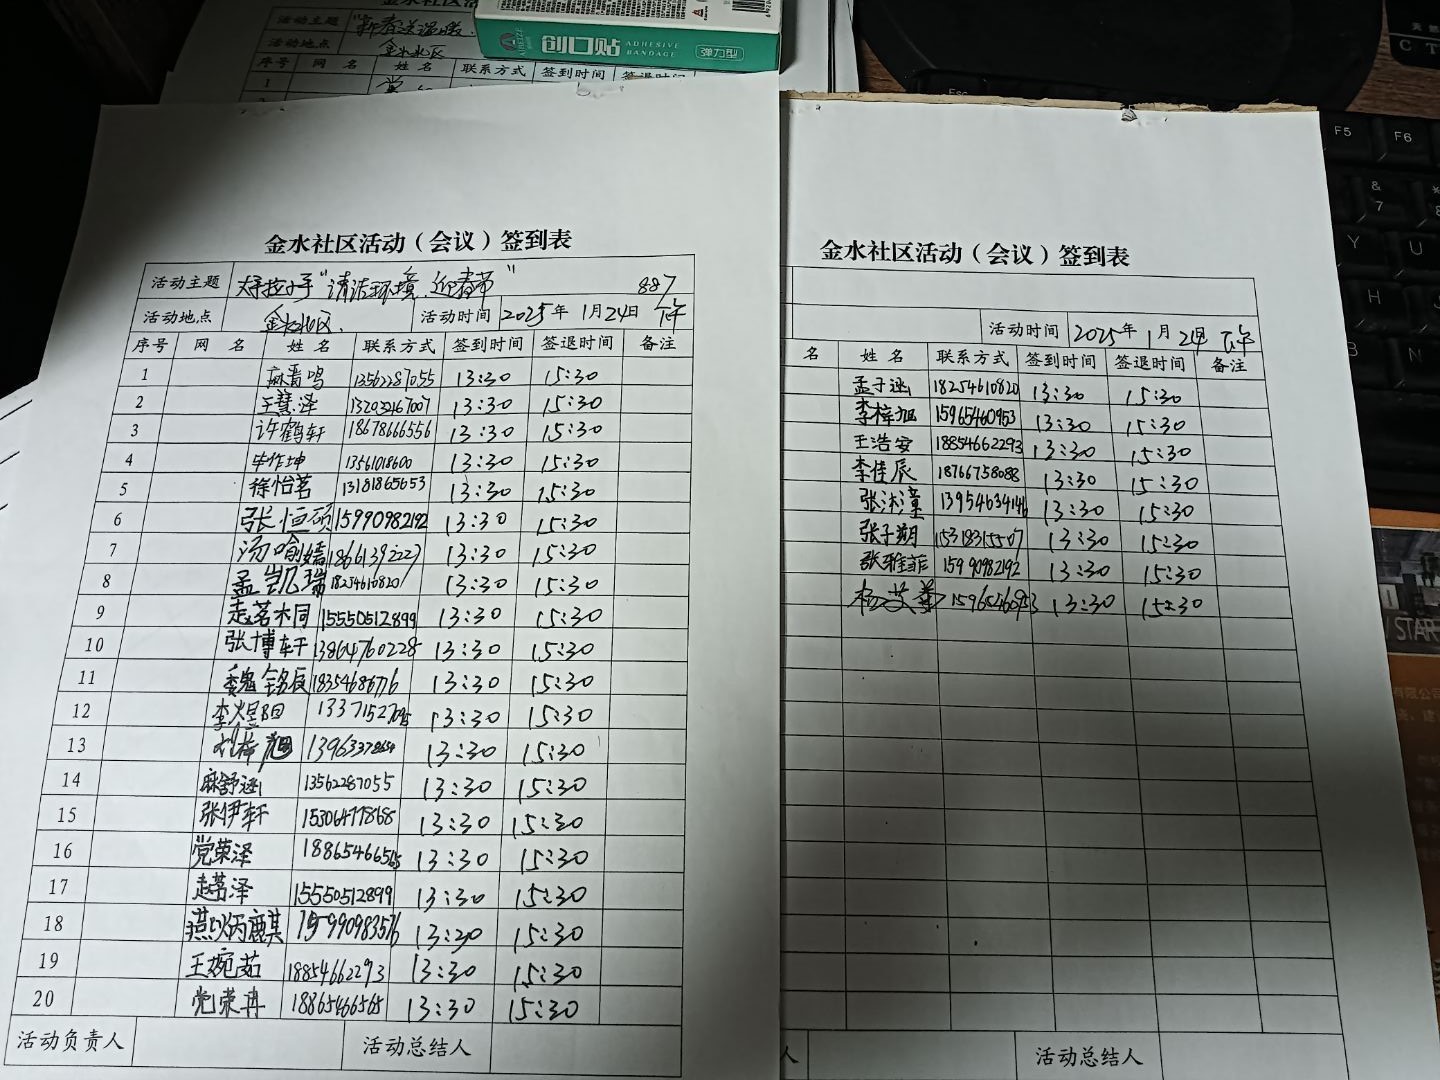 金水社区活
活动主题 "新春送温暖
活动地点 金水社区
序号 网 名 姓 名 联系方式 签到时间 签退时间
1
创口贴 ADHESIVE BANDAGE 弹力型
金水社区活动（会议）签到表
活动主题 大手拉小手"清洁环境、迎春节" 887
活动地点 金水社区 活动时间 2025年 1月24日 下午
序号 网 名 姓 名 联系方式 签到时间 签退时间 备注
1 麻晋鸣 13562287055 13:30 15:30
2 王慧泽 13203467007 13:30 15:30
3 许鹤轩 18678666556 13:30 15:30
4 毕作坤 13561018600 13:30 15:30
5 徐怡茗 13181865653 13:30 15:30
6 张恒硕 15990982192 13:30 15:30
7 汤喻嬬 18661392227 13:30 15:30
8 孟凯瑞 18254610820 13:30 15:30
9 赵茗木同 15550512899 13:30 15:30
10 张博轩 13864760228 13:30 15:30
11 魏铭辰 13:30 15:30
12 李煜阳 13:30 15:30
13 13:30 15:30
14 麻舒涵 13562287055 13:30 15:30
15 张伊轩 15306477868 13:30 15:30
16 党荣泽 18865466565 13:30 15:30
17 赵茗泽 15550512899 13:30 15:30
18 燕以丙麒 15990983576 13:30 15:30
19 王婉茹 18854662293 13:30 15:30
20 党荣冉 18865466565 13:30 15:30
活动负责人 活动总结人
金水社区活动（会议）签到表
活动时间 2025年 1月24日 下午
名 姓 名 联系方式 签到时间 签退时间 备注
孟子涵 18254610820 13:30 15:30
李梓旭 15965460953 13:30 15:30
王浩安 18854662293 13:30 15:30
李佳辰 18766758088 13:30 15:30
张沐潼 13954634146 13:30 15:30
张子朔 15318315507 13:30 15:30
张雅菲 15990982192 13:30 15:30
13:30 15:30
人 活动总结人
Esc
F5 F6
& 7
Y U
H J
B N
START
有限公司